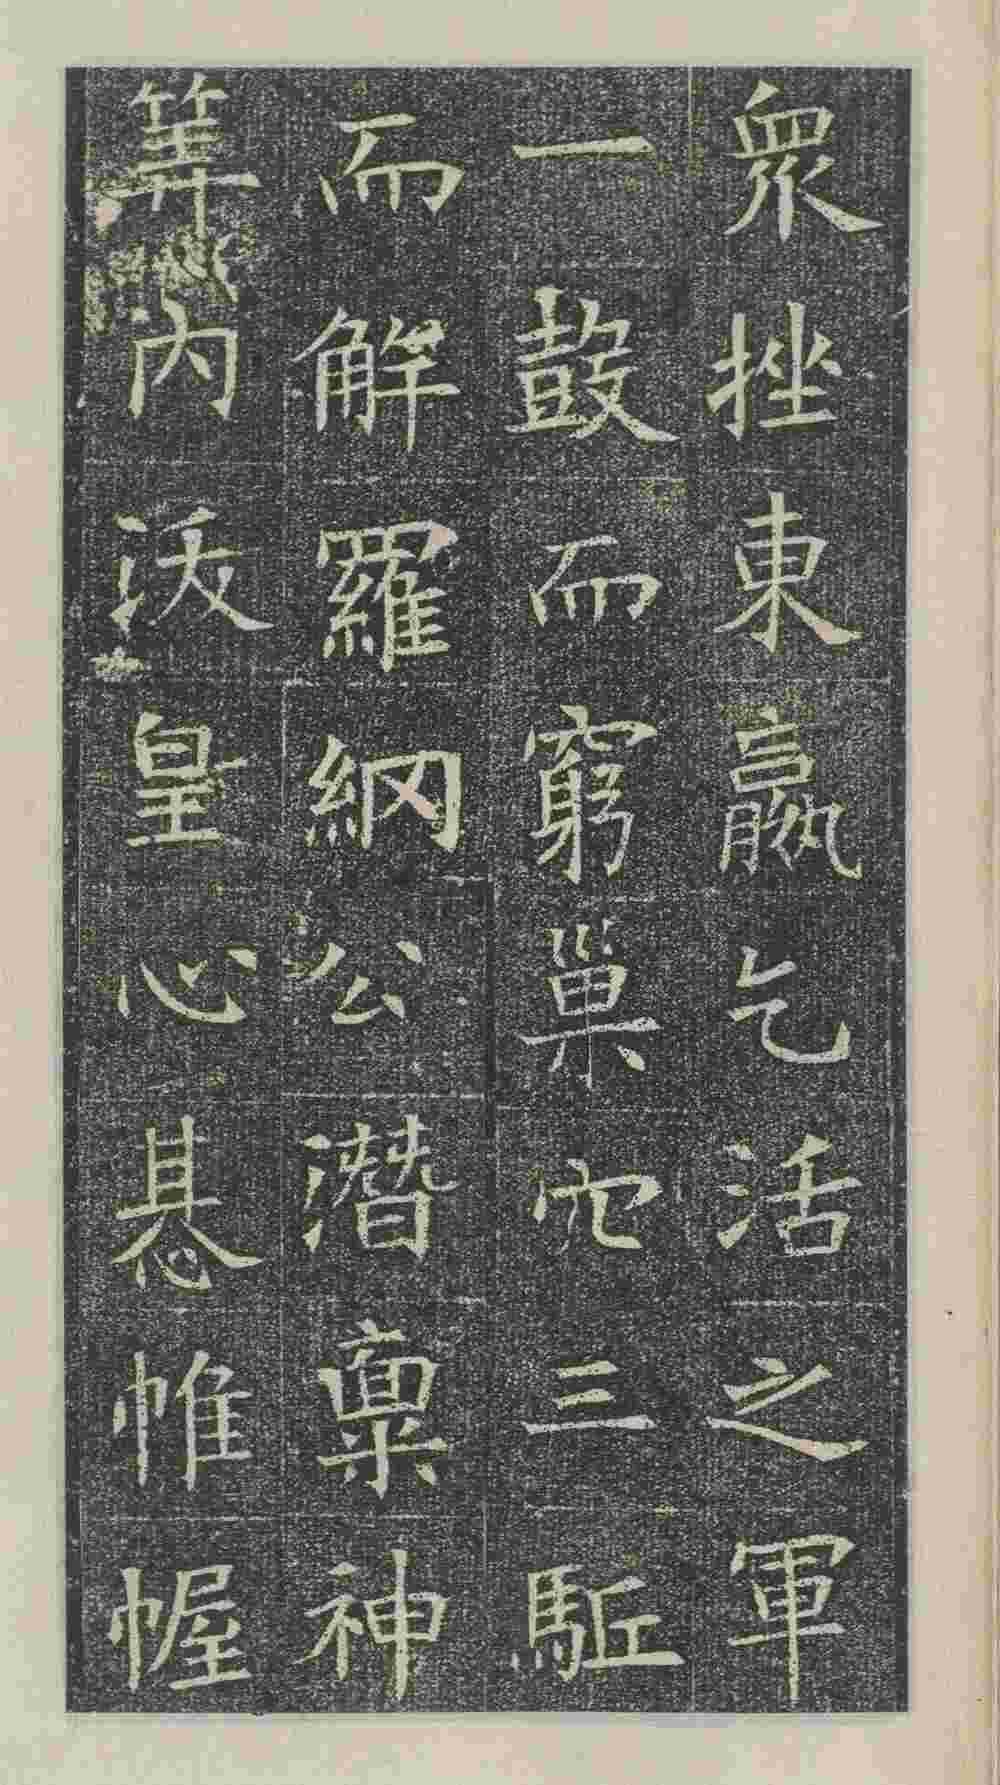 衆挫東嬴乞活之軍
一鼓而窮巢穴三駈
而解羅網公潜稟神
筭內沃皇心基帷幄